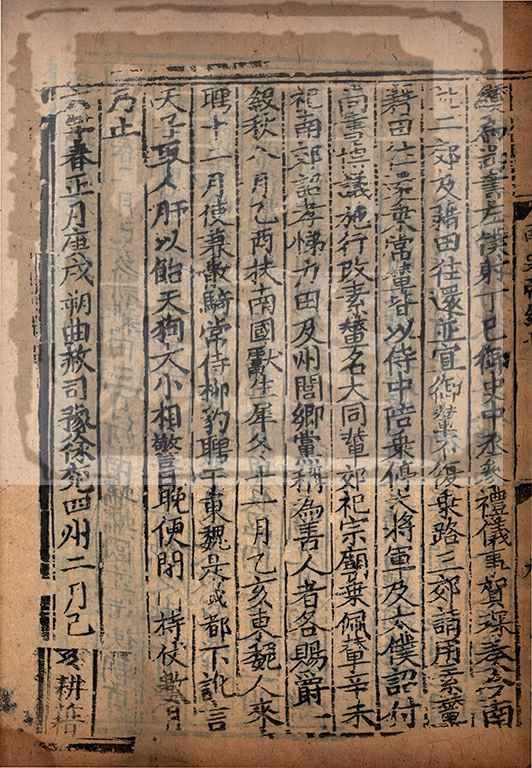 為尚書左僕射丁巳御史中丞參禮儀事賀琛奏今南
北二郊及藉田往還並宜御輦不復乘路三郊請用素輦
藉田往還乘常輦皆以侍中陪乘停大將軍及太僕詔付
尚書博議施行改素輦名大同輦郊祀宗廟乘佩輦辛未
祀南郊詔孝悌力田及州閭鄉黨稱為善人者各賜爵
級秋八月乙酉扶南國獻生犀冬十一月乙亥東魏人來
聘十二月使兼散騎常侍柳豹聘于東魏是歲都下訛言
天子取人肝以飴天狗大小相警日晚便閉門持仗數月
乃止
六年春正月庚戌朔曲赦司豫徐兗四州二月己
亥耕籍